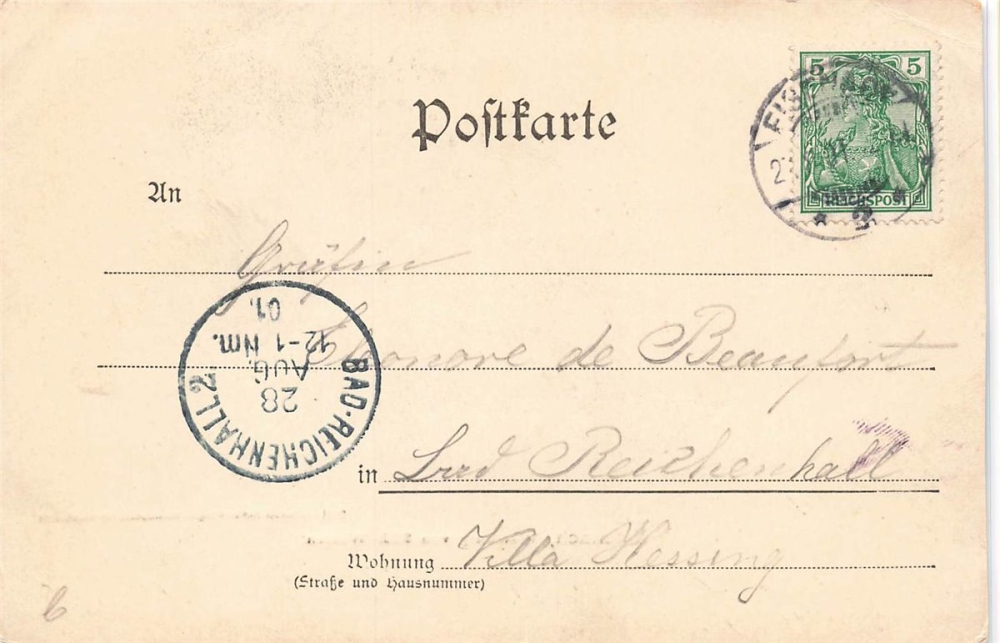 Postkarte
5 5
REICHSPOST
2
An
Gräfin
Eleonore de Beaufort
BAD-REICHENHALL 2
28
AUG.
12-1 Nm.
01.
in Bad Reichenhall
Wohnung Villa Hessing
(Straße und Hausnummer)